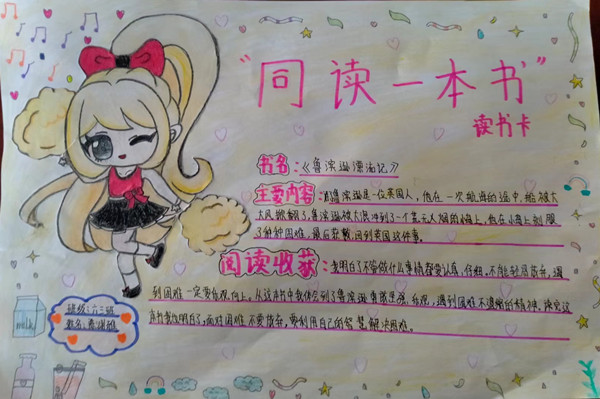 “同读一本书”
读书卡
书名：《鲁滨逊漂流记》
主要内容：鲁滨逊是一位英国人，他在一次航海的途中，船被大
大风掀翻了，鲁滨逊被大浪冲到了一个荒无人烟的岛上，他在小岛上克服
了种种困难，最后获救，回到英国这件事。
阅读收获：我明白了不管做什么事情都要认真、仔细，不能轻易放弃，遇
到困难一定要乐观向上。从这本书中我体会到了鲁滨逊勇敢坚强、乐观，遇到困难不退缩的精神。读完这
本书我明白了，面对困难不要放弃，要利用自己的智慧解决困难。
班级：六三班
姓名：
milk